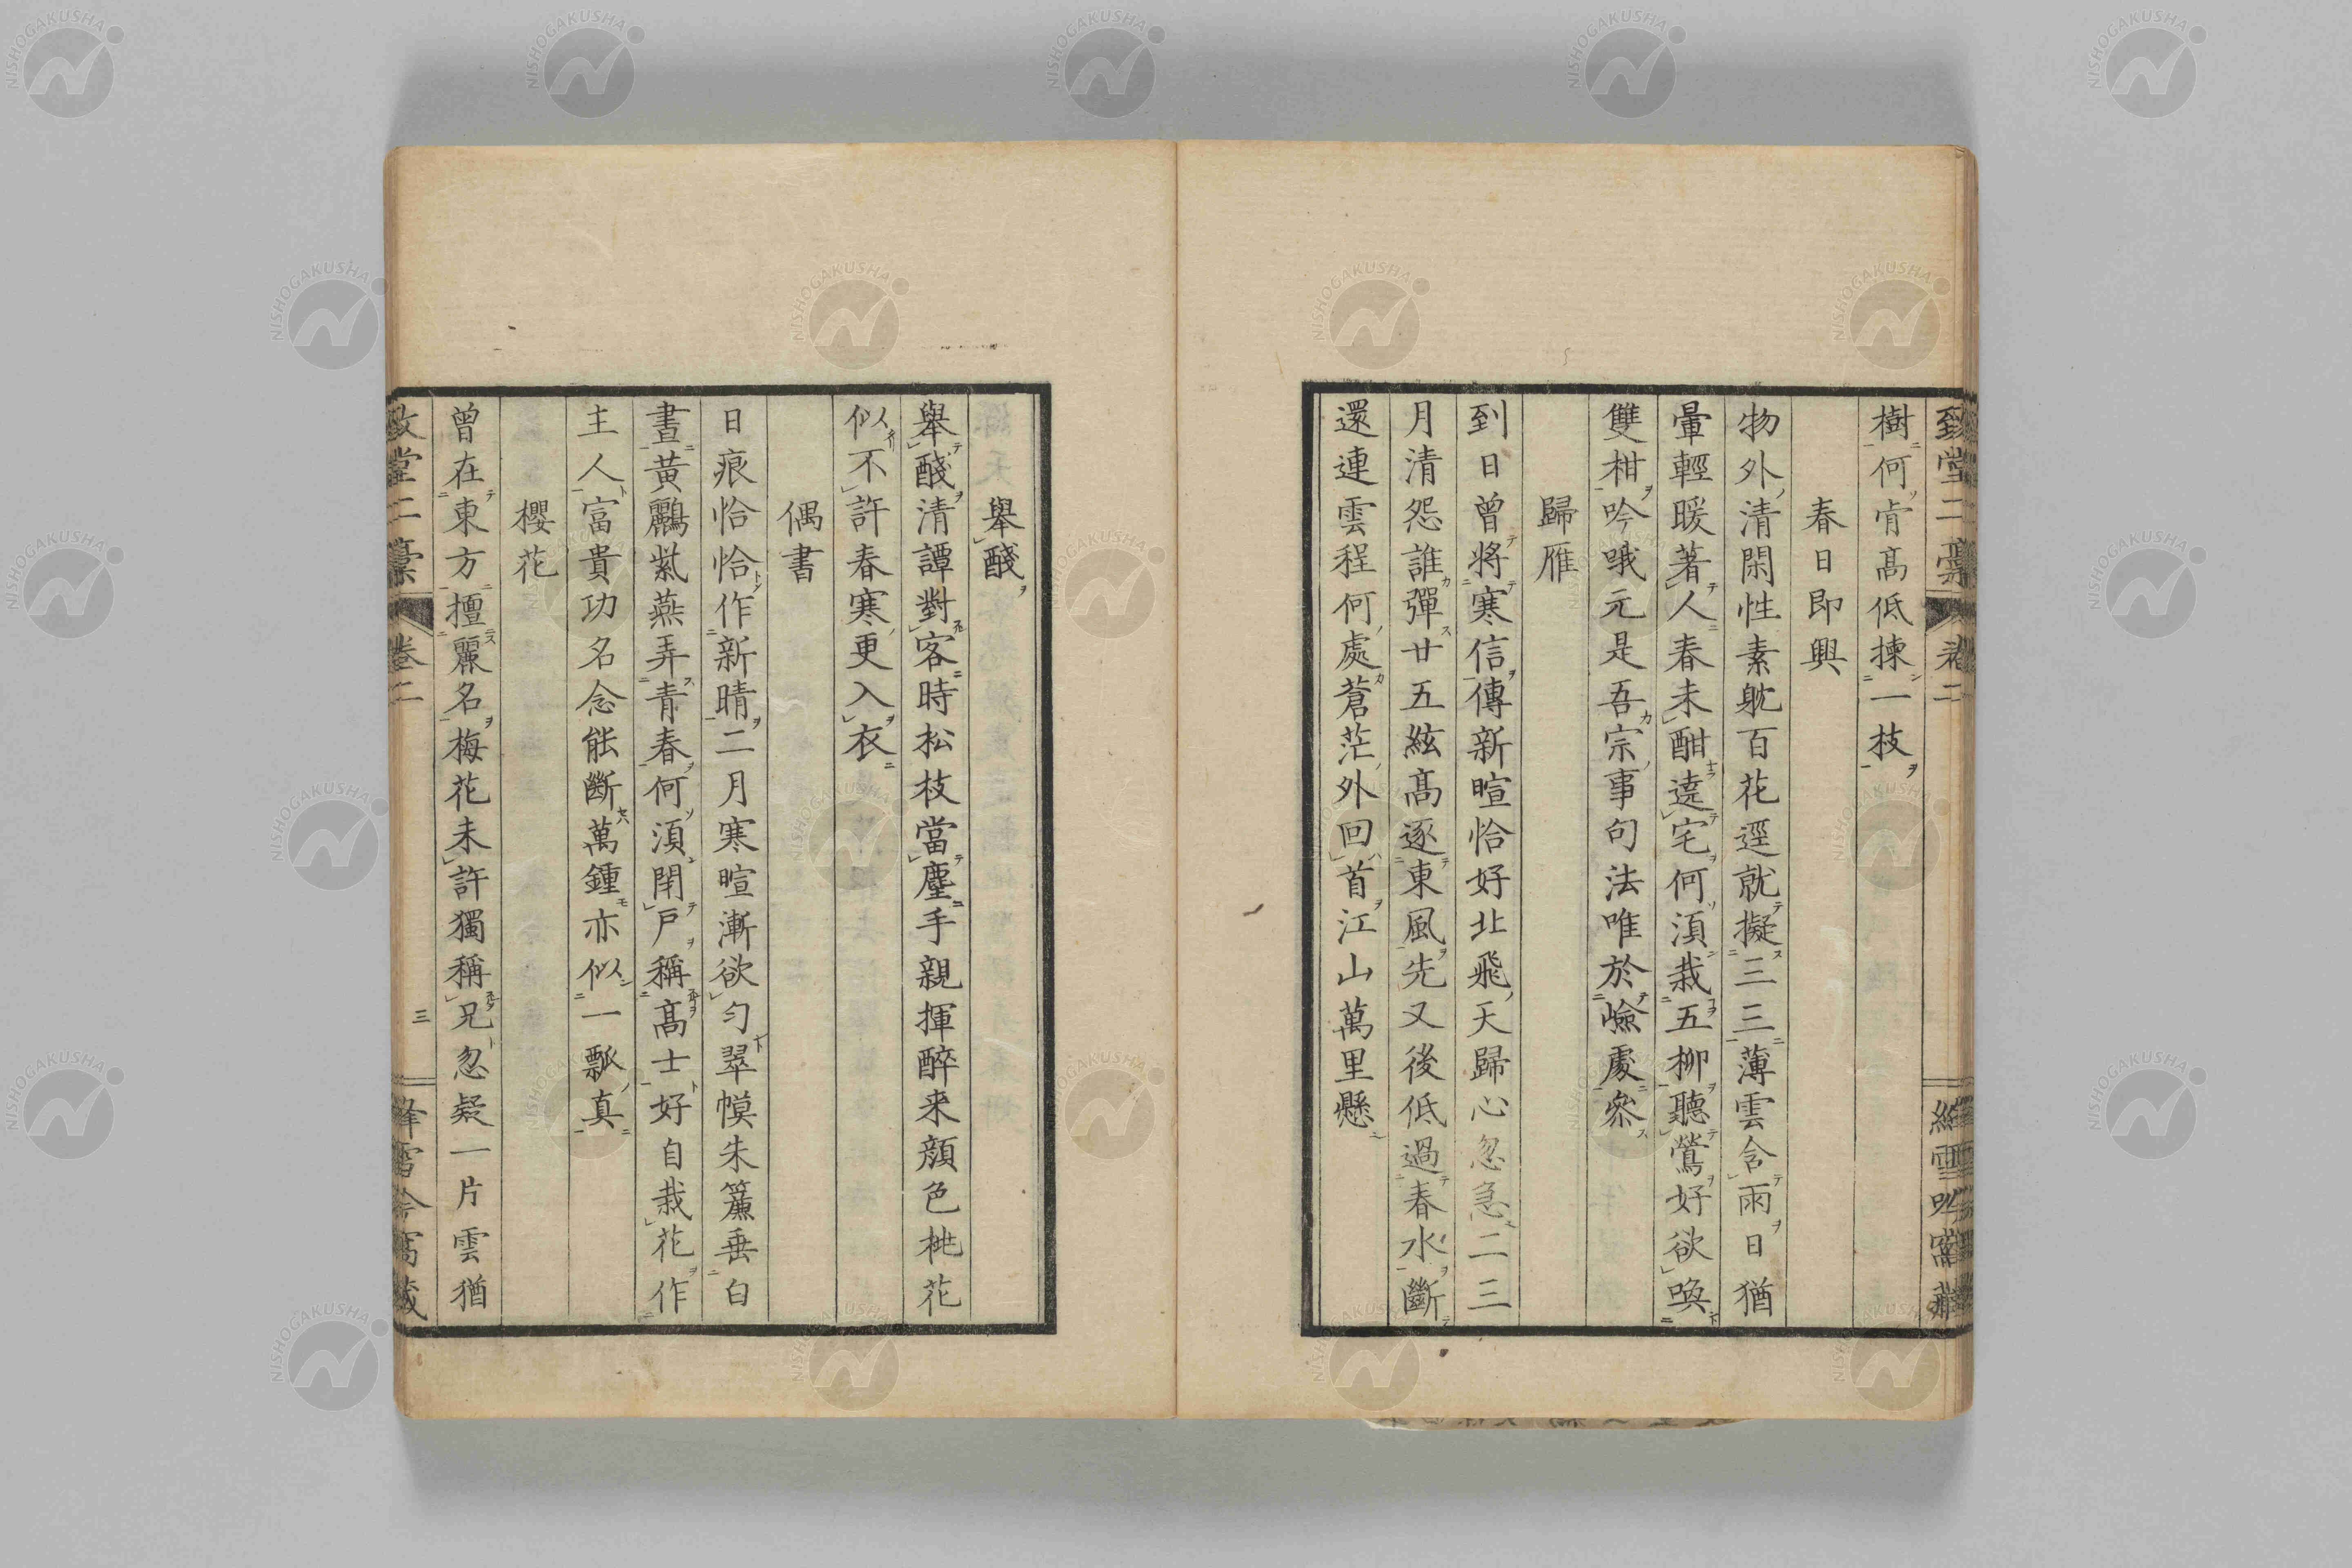 致堂二稾 卷二 絳雪吟窩藏
樹何肯髙低揀一枝
春日即興
物外清閑性素躭百花逕就擬三三薄雲含雨日猶
暈輕暖著人春未酣遶宅何湏栽五柳聽鶯好欲喚
雙柑吟哦元是吾宗事句法唯於嶮處叅
歸雁
到日曾將寒信傳新暄恰好北飛天歸心忽急二三
月清怨誰彈廿五絃髙逐東風先又後低過春水斷
還連雲程何處蒼茫外回首江山萬里懸
舉醆
舉醆清譚對客時松枝當麈手親揮醉来顔色桃花
似不許春寒更入衣
偶書
日痕恰恰作新晴二月寒暄漸欲匀翠幙朱簾垂白
晝黃鸝紫燕弄青春何湏閉戸稱髙士好自栽花作
主人富貴功名念能斷萬鍾亦似一瓢真
櫻花
曾在東方擅麗名梅花未許獨稱兄忽疑一片雲猶
致堂二稾 卷二 三 絳雪吟窩藏
NISHOGAKUSHA